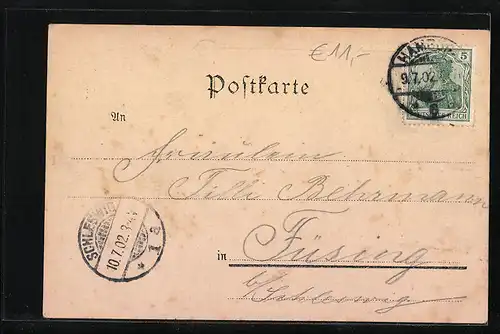 €11,-
Postkarte
5
9.7.02.
An
Fräulein
Tilli Behrmann
in Füsing
b/Schleswig
SCHLESWIG
10.7.02.